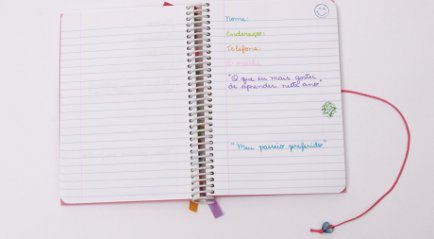 Nome:
Endereço:
Telefone:
E-mail:
"O que eu mais gostei
de aprender neste ano"
"Meu passeio preferido"